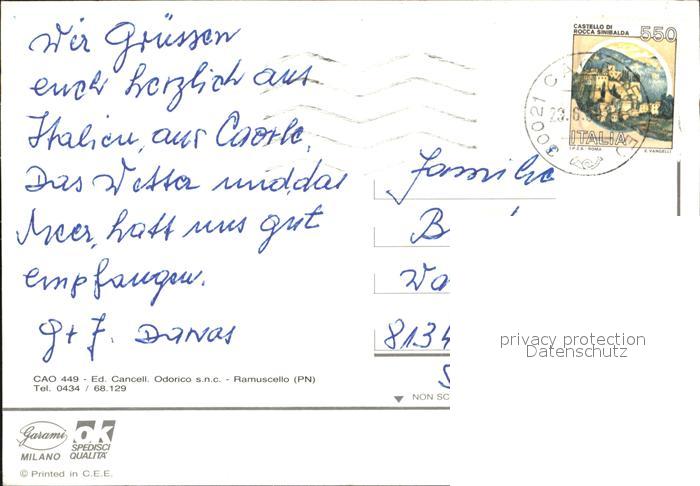 Wir Grüssen
euch herzlich aus
Italien, aus Caorle.
Das Wetter und das
Meer, hatt uns gut
empfangen.
G + J. Darvas
CAO 449 - Ed. Cancell. Odorico s.n.c. - Ramuscello (PN)
Tel. 0434 / 68.129
Garami
MILANO
ok
SPEDISCI
QUALITÀ
© Printed in C.E.E.
CASTELLO DI
ROCCA SINIBALDA
550
ITALIA
I.P.Z.S. - ROMA
E. VANGELLI
30021
Familie
B
Wa
8134
NON SC
privacy protection
Datenschutz